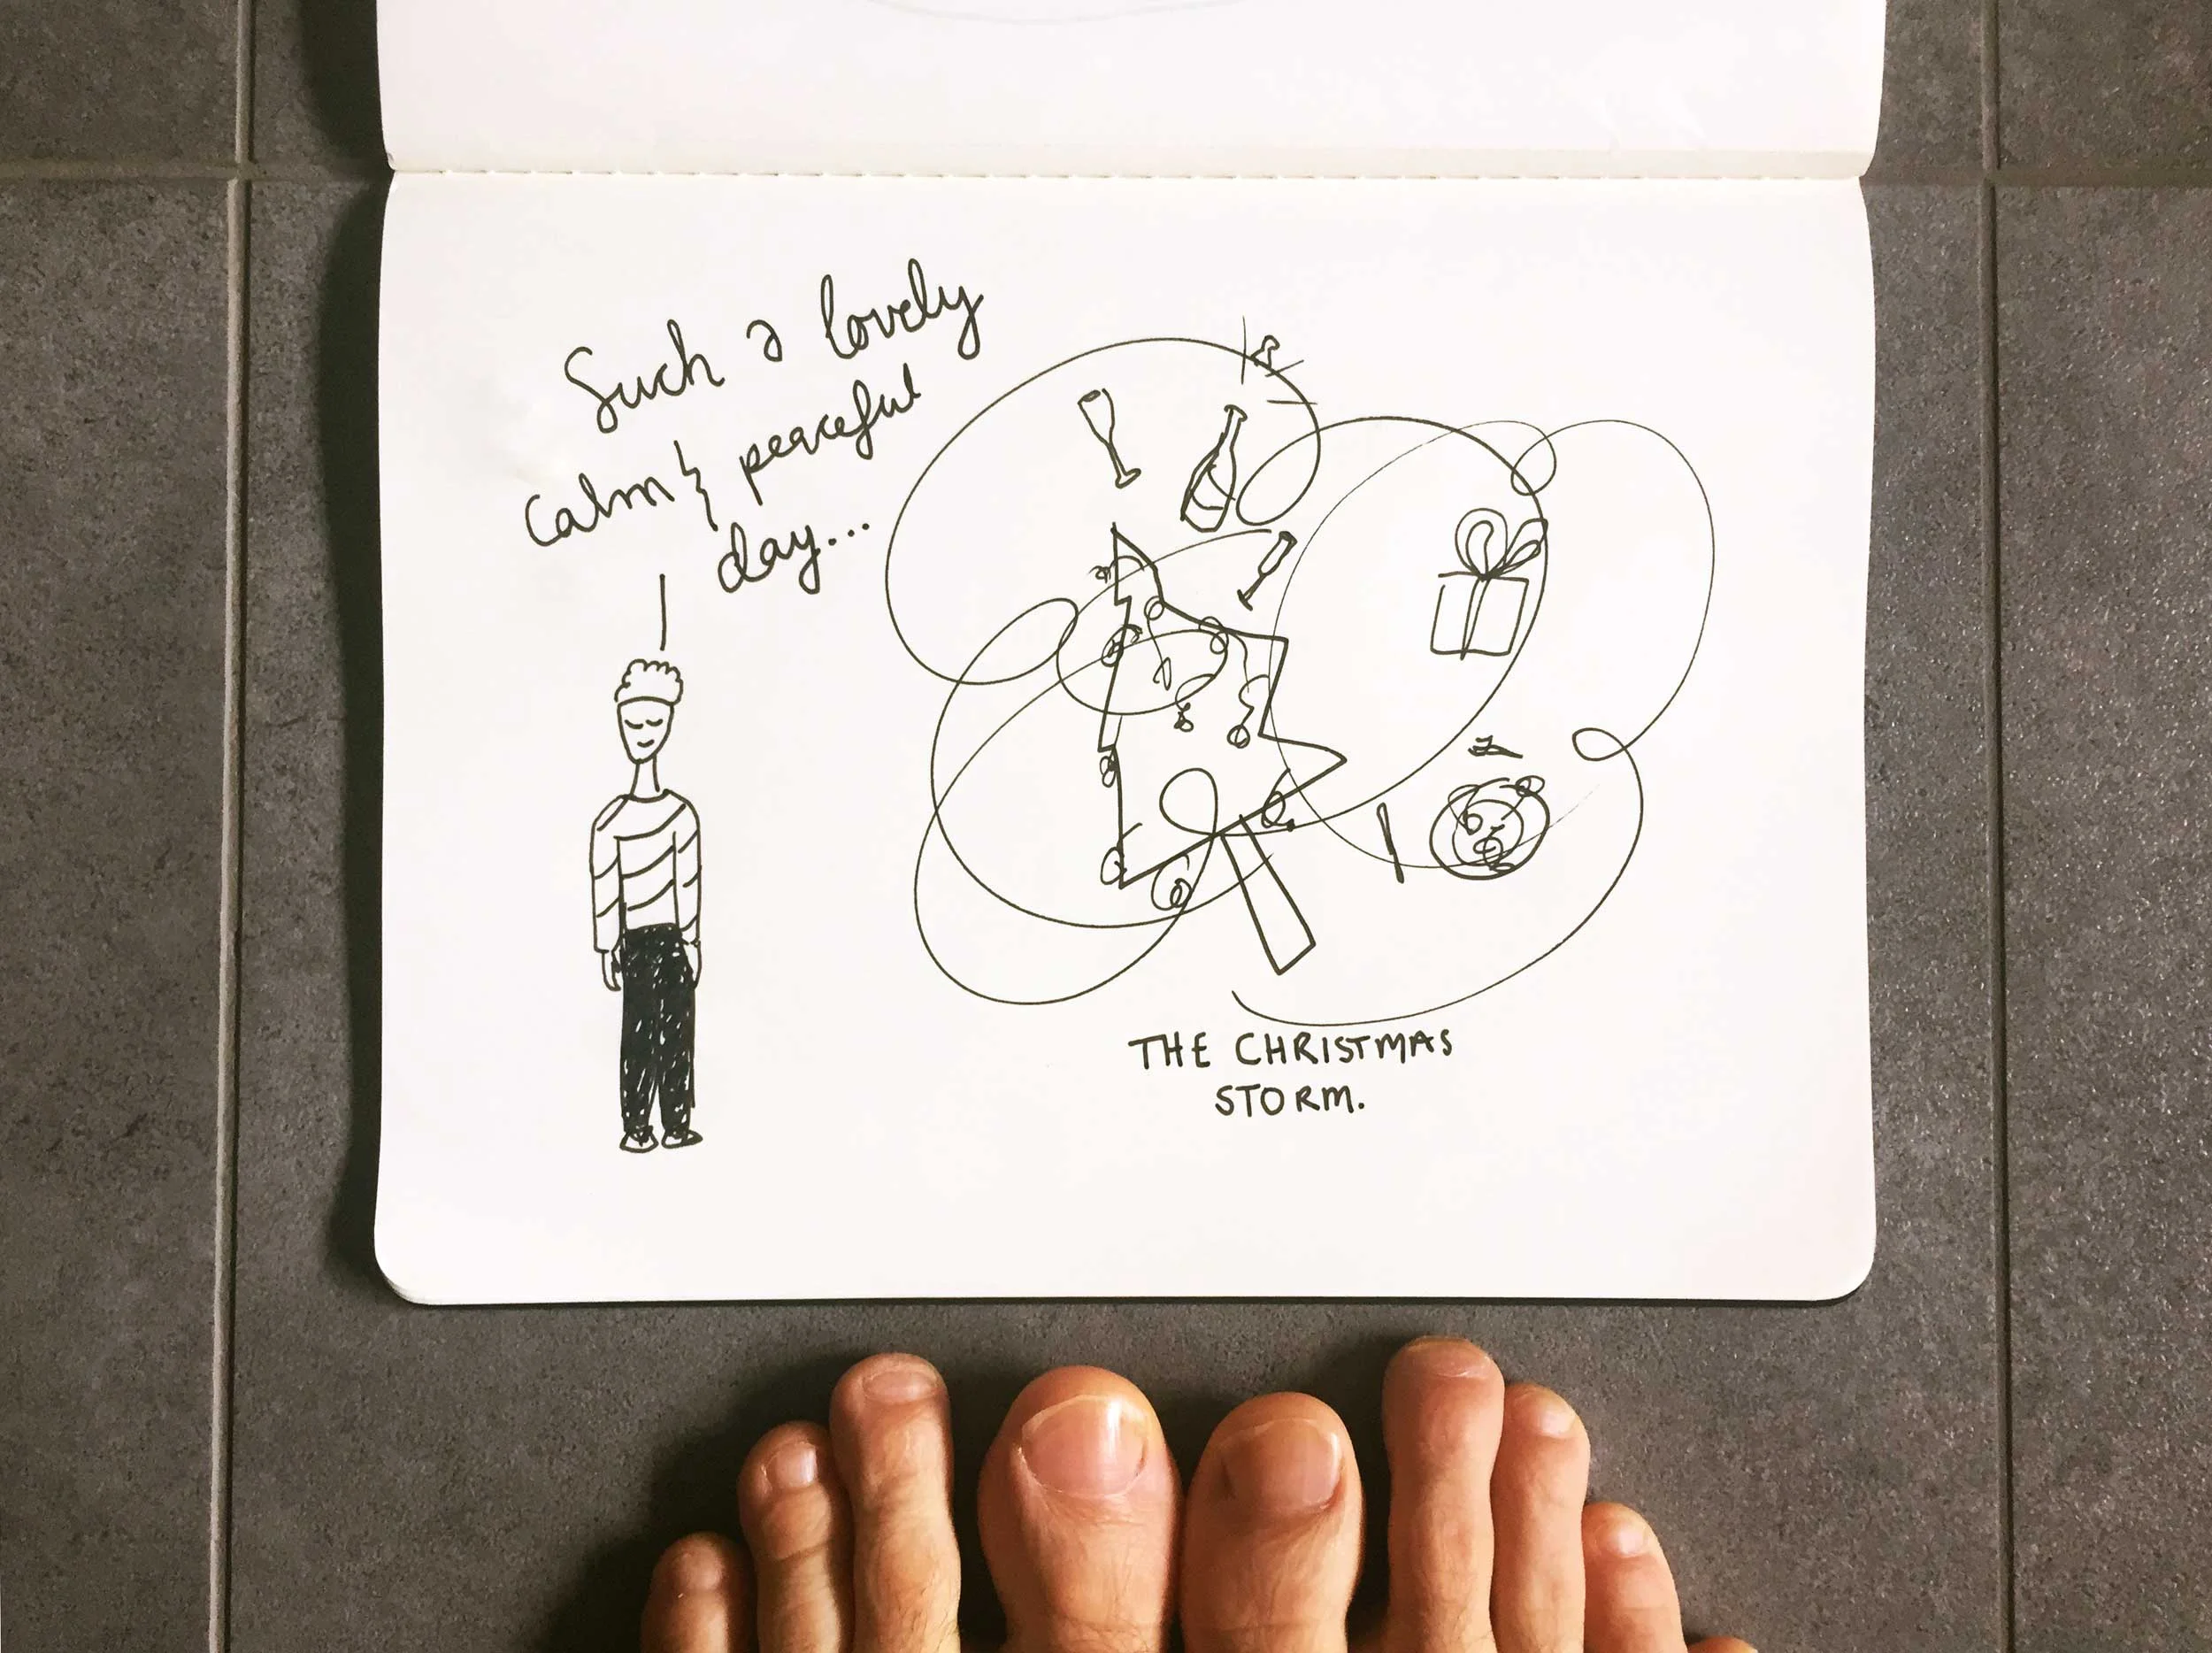 Such a lovely
calm & peaceful
day...
THE CHRISTMAS
STORM.